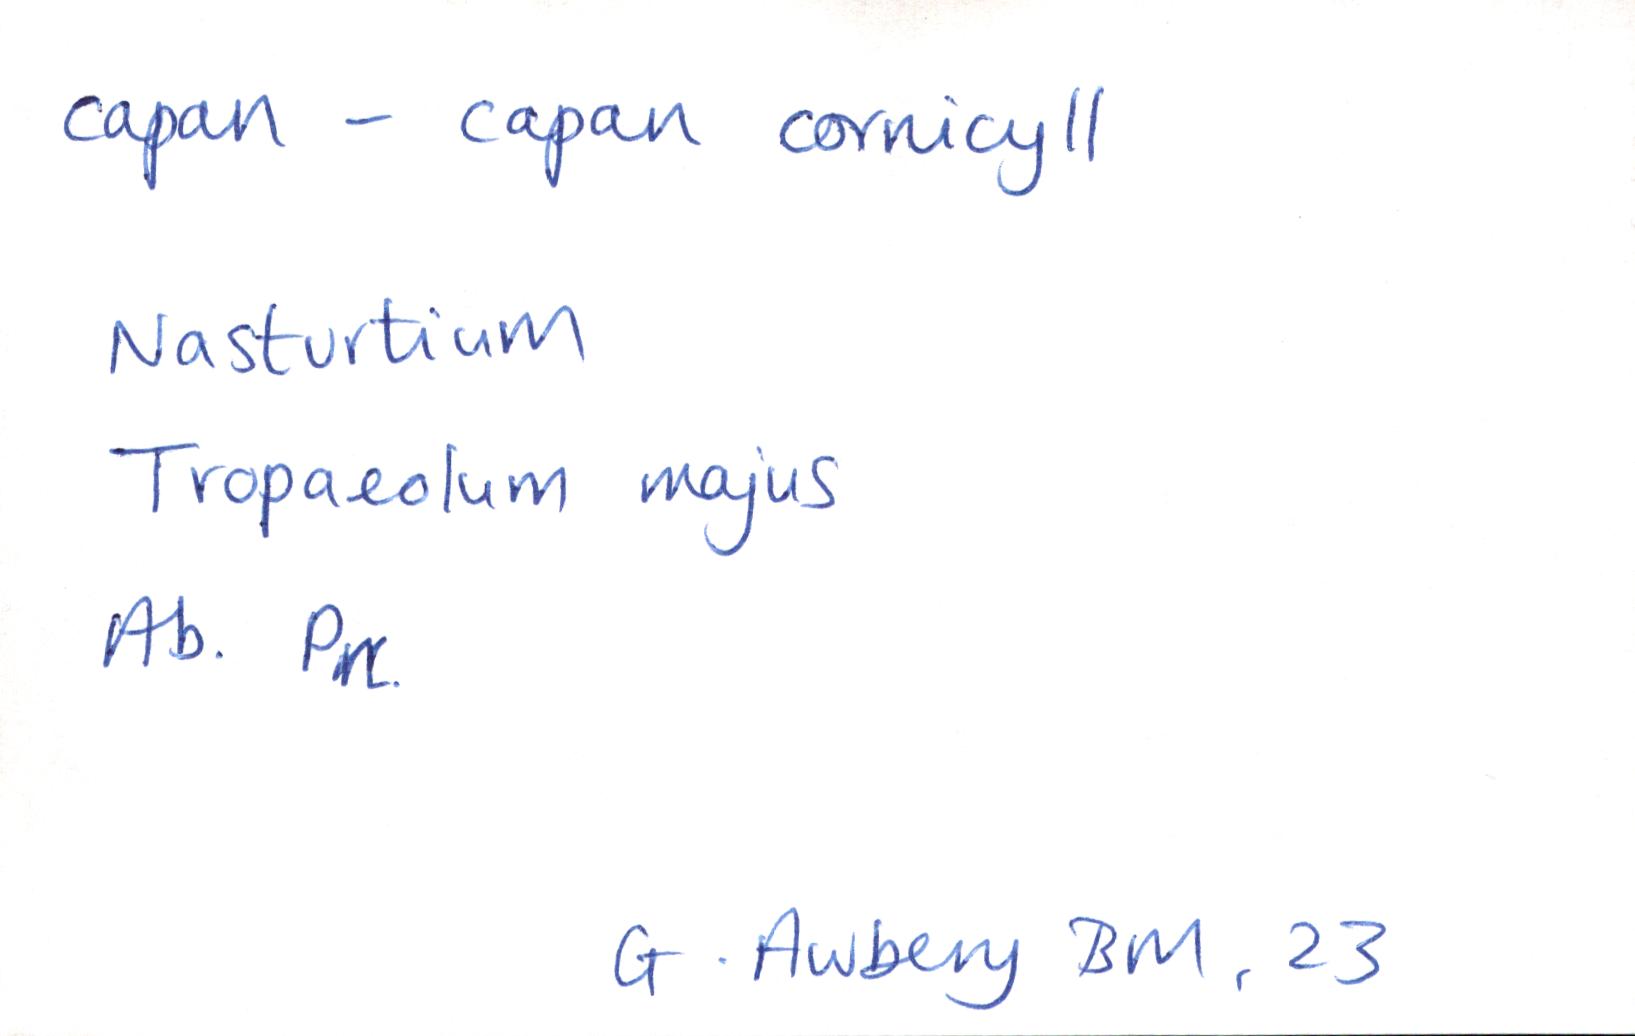 capan - capan cornicyll
Nasturtium
Tropaeolum majus
Ab.
G. Awbery BM, 23